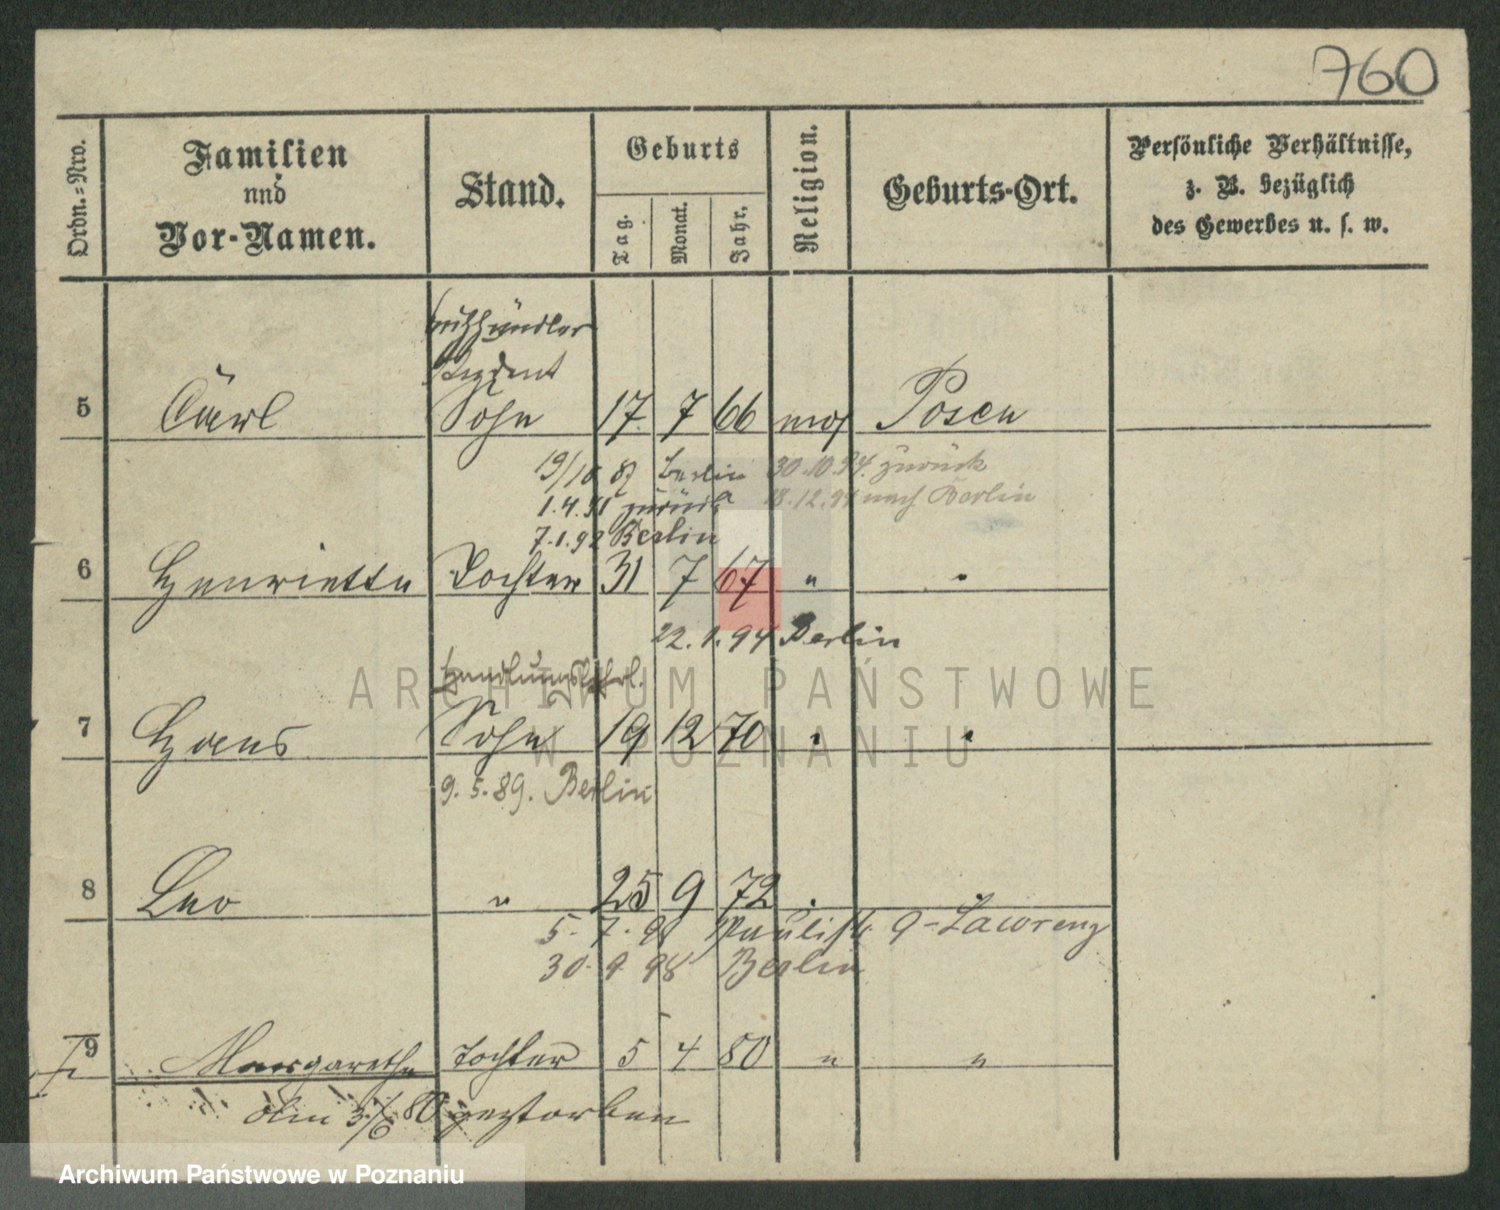 760
Ordn.=Nro.
Familien
und
Vor-Namen.
Stand.
Geburts
Tag.
Monat.
Jahr.
Religion.
Geburts-Ort.
Persönliche Verhältnisse,
z. B. bezüglich
des Gewerbes u. s. w.
5 Carl Sohn 17 7 66 mos Posen
Berlin 30.10.94. zurück
1.4.91 zurück 18.12.94 nach Berlin
7.1.92 Berlin
6 Henriette Tochter 31 7 67 " "
22.1.94 Berlin
7 Hans Sohn 19 12 70 " "
9.5.89. Berlin
8 Leo " 25 9 72
5.7.98 Paulistr. 9 - Lawrenz
30.9.98 Berlin
9 Margarethe Tochter 5 4 80 " "
am 3/6 80 gestorben
ARCHIWUM PAŃSTWOWE
W POZNANIU
Archiwum Państwowe w Poznaniu